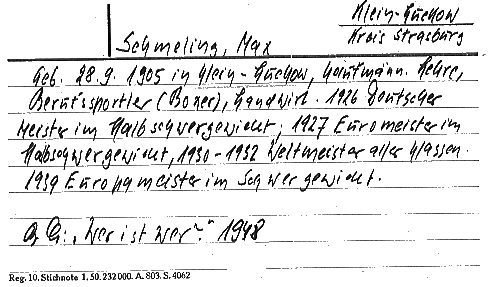 Klein-Luckow
Kreis Strasburg
Schmeling, Max
Geb. 28.9. 1905 in Klein-Luckow, kaufmänn. Lehre,
Berufssportler (Boxer), Landwirt. 1926 Deutscher
Meister im Halbschwergewicht, 1927 Euromeister im
Halbschwergewicht, 1930-1932 Weltmeister aller Klassen.
1939 Europameister im Schwergewicht.
"Wer ist wer?" 1948
Reg. 10. Stichnote 1, 50. 232000. A. 803. S. 4062